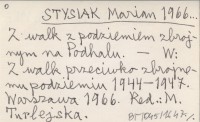 STYSIAK Marian 1966...
Z walk z podziemiem zbroj-
nym na Podhalu. — W:
Z walk przeciwko zbrojne-
mu podziemiu 1944-1947.
Warszawa 1966. Red.: M.
Turlejska.